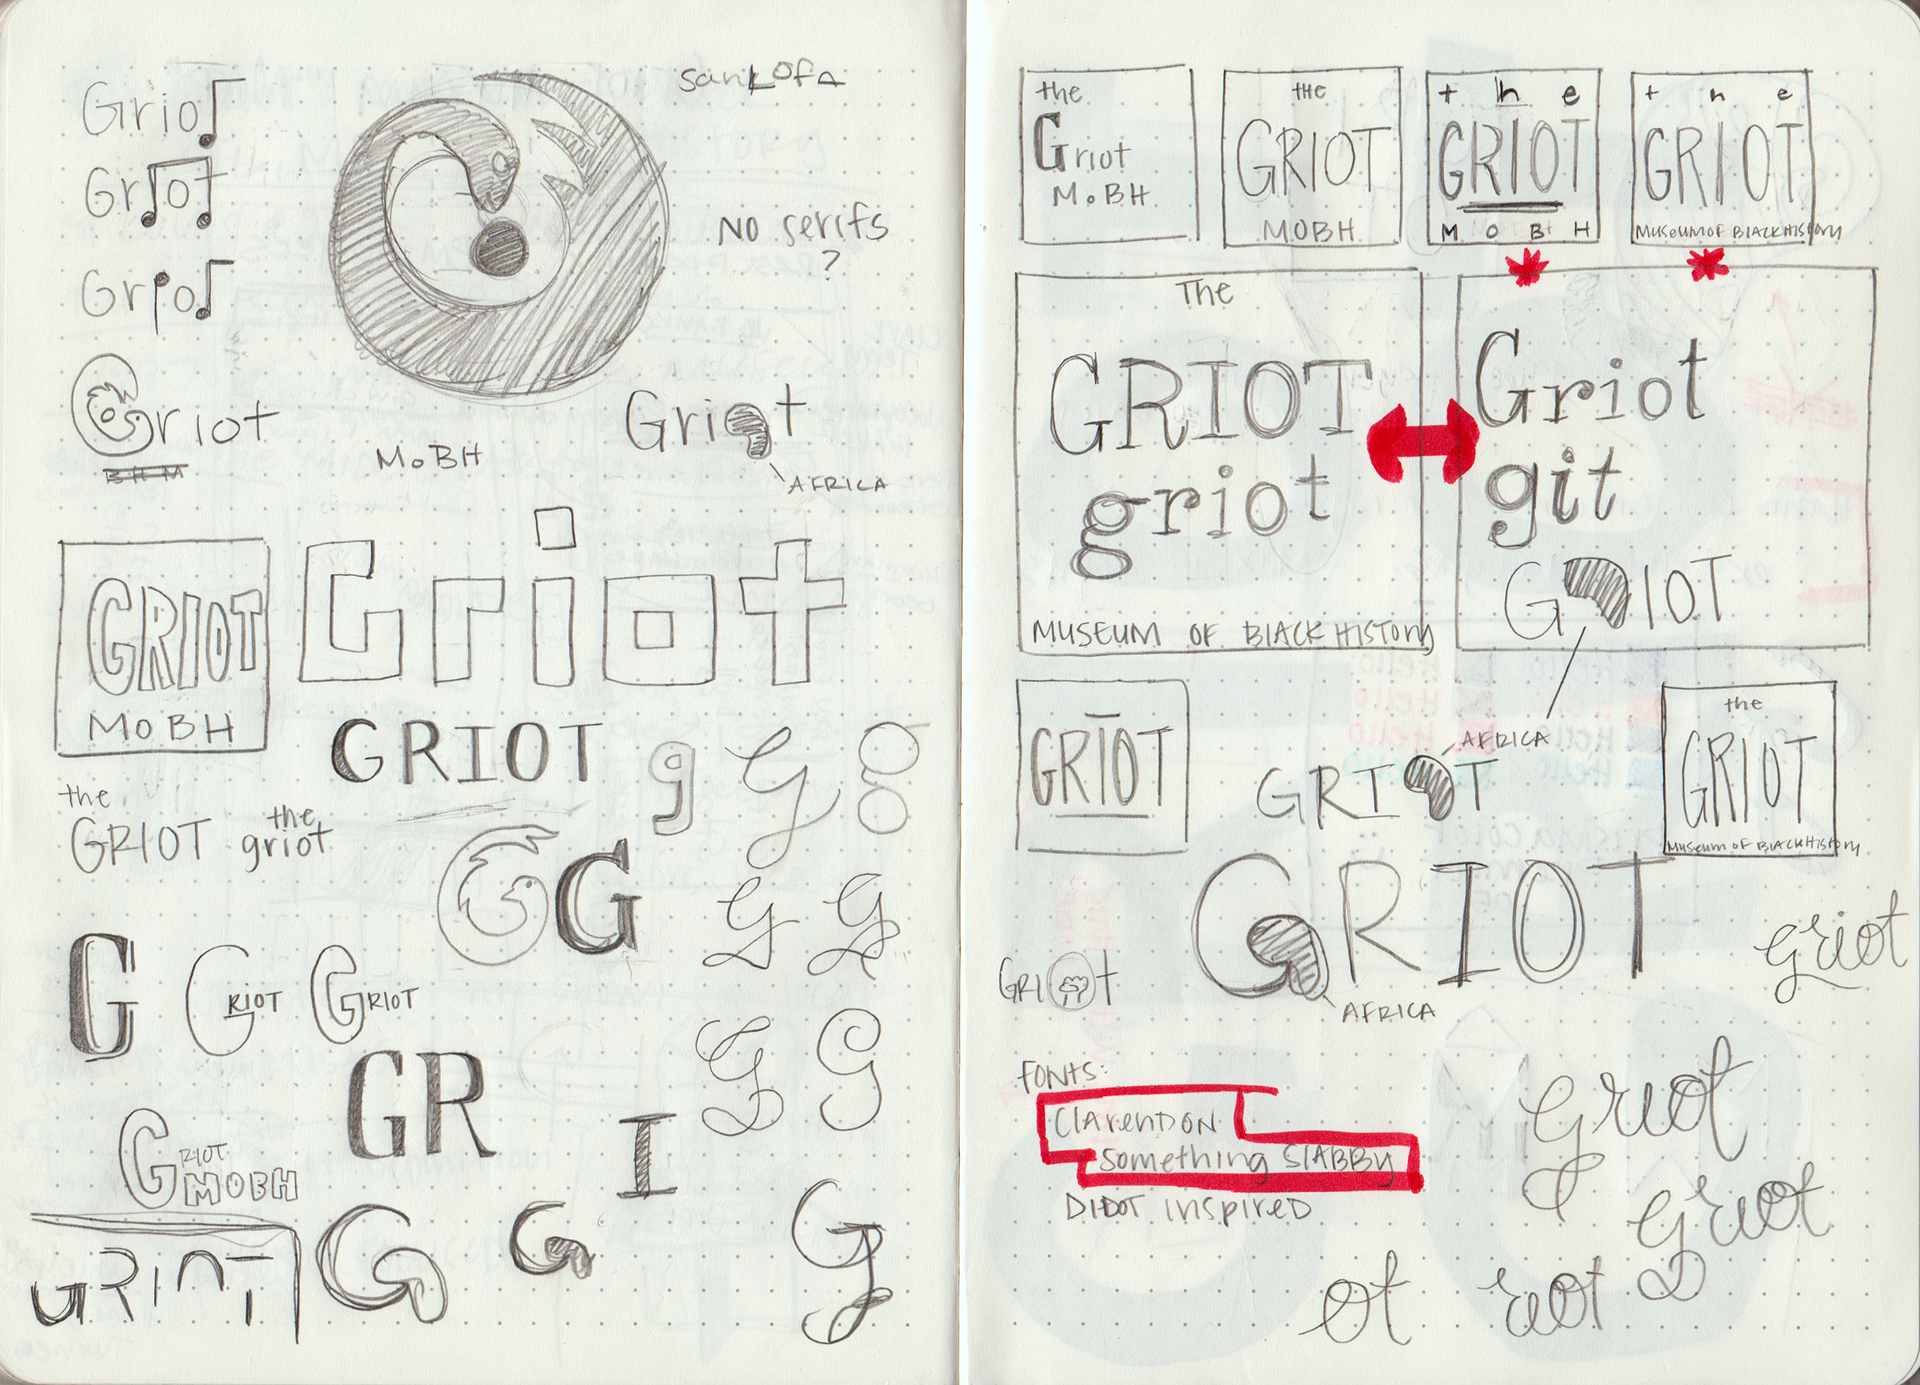 Griot
sankofa
Griot
No serifs
?
Griot
Griot
BHM
MoBH
Griot
AFRICA
GRIOT
MoBH
Griot
GRIOT
g
g
g
the
GRIOT
the
griot
G
G
g
g
G
GRIOT
GRIOT
g
G
GR
I
GRIOT
MOBH
GRIOT
G
G
G
the
Griot
MoBH
the
GRIOT
MOBH
the
GRIOT
MOBH
the
GRIOT
Museum of Black History
The
GRIOT
griot
MUSEUM OF BLACK HISTORY
Griot
git
GRIOT
GRIOT
AFRICA
GRIOT
the
GRIOT
Museum of Black History
GRIOT
AFRICA
GRIOT
griot
FONTS:
Clarendon
something SLABBY
DIDOT inspired
griot
griot
ot
riot